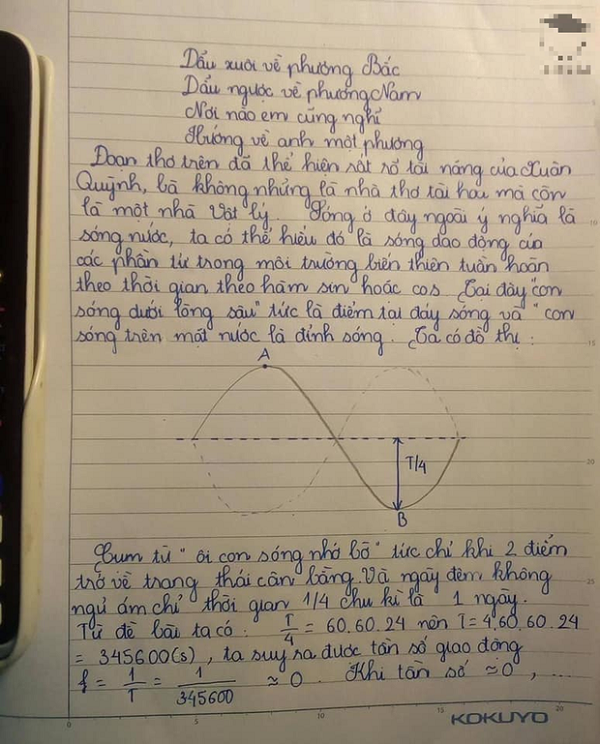 Dẫu xuôi về phương Bắc
Dẫu ngược về phương Nam
Nơi nào em cũng nghĩ
Hướng về anh một phương
Đoạn thơ trên đã thể hiện sất rổ tài năng của Xuân
Quỳnh, bà không những là nhà thơ tài hoa mà còn
là một nhà Vật lý. Sóng ở đây ngoài ý nghĩa là
sóng nước, ta có thể hiểu đó là sóng dao động của
các phần tử trong môi trường biến thiên tuần hoàn
theo thời gian theo hàm sin hoặc cos. Tại đây "con
sóng dưới lòng sâu" tức là điểm tại đáy sóng và "con
sóng trên mặt nước là đỉnh sóng. Ta có đồ thị:
A
T/4
B
Cụm từ "ôi con sóng nhớ bờ" tức chỉ khi 2 điểm
trở về trạng thái cân bằng. Và ngày đêm không
ngủ ám chỉ thời gian 1/4 chu kì là 1 ngày.
Từ đề bài ta có. T/4 = 60.60.24 nên T = 4.60.60.24
= 345600(s), ta suy ra được tần số giao động
f = 1/T = 1/345600 ≈ 0. Khi tần số ≈ 0, ...
KOKUYO